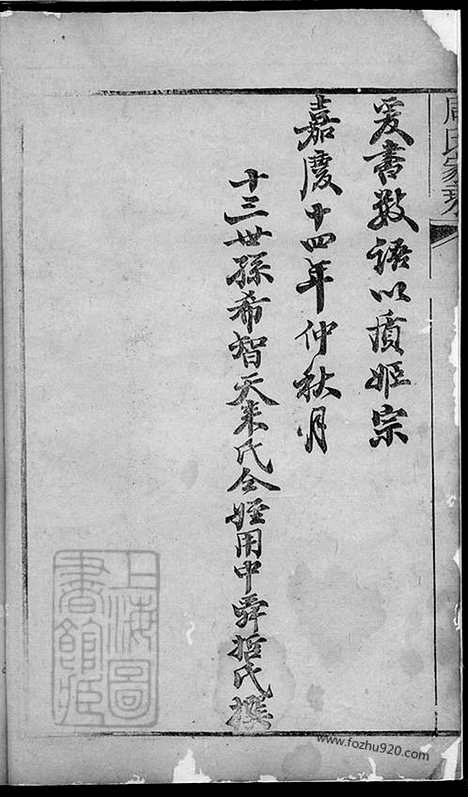 周氏家乘
爰書数語以質姬宗
嘉慶十四年仲秋月
十三世孫希智天来氏仝姪用中舜哲氏撰
上海圖書館
www.fozhu920.com